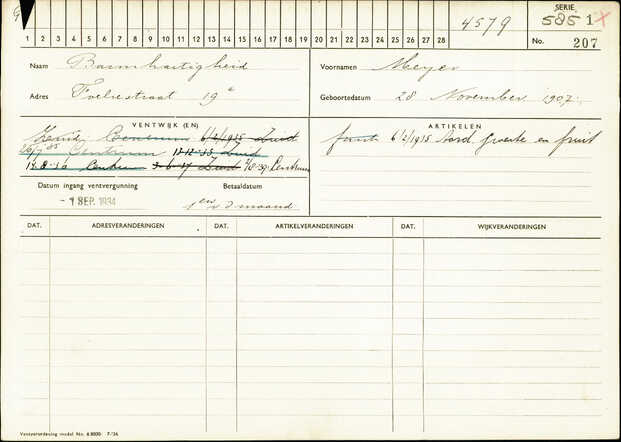 4579
SERIE
585 1
1 2 3 4 5 6 7 8 9 10 11 12 13 14 15 16 17 18 19 20 21 22 23 24 25 26 27 28
No. 207
Naam Barmhartigheid Voornamen Meyer
Adres Foeliestraat 19 Geboortedatum 28 November 1907
VENTWIJK (EN) ARTIKELEN
Centrum 6/2/1935 Zuid
6/2/1935 Aard, Groente en fruit
Centrum 12-12-35 Zuid
Centrum 3-6-37 Zuid Centrum
Datum ingang ventvergunning Betaaldatum
-1 SEP. 1934
1 en v d maand
DAT. ADRESVERANDERINGEN DAT. ARTIKELVERANDERINGEN DAT. WIJKVERANDERINGEN
Ventverordening model No. 6 8000 7-'34